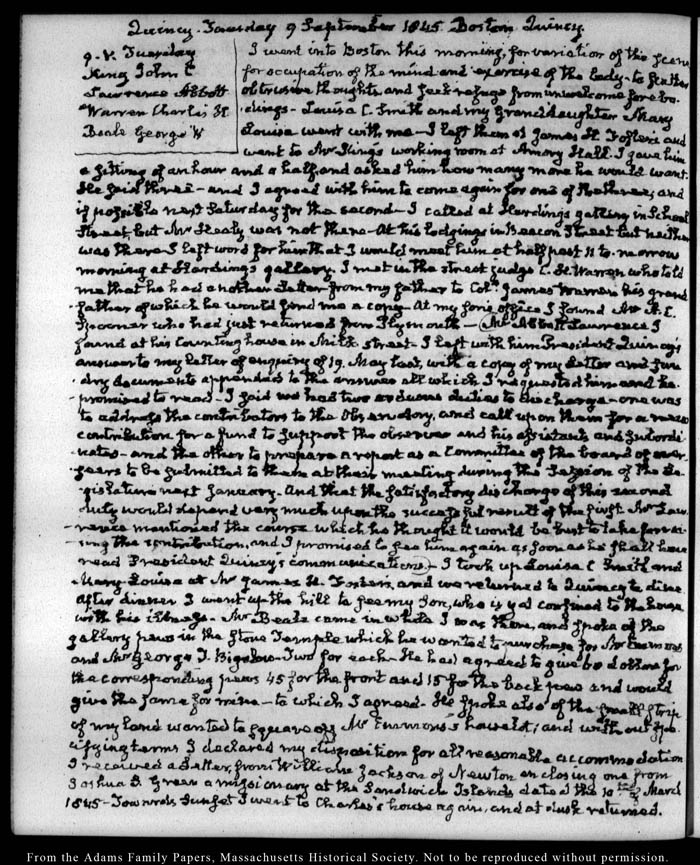 Quincy. Tuesday 9 September 1845. Boston. Quincy.
9. V. Tuesday
King John C
Lawrence Abbott
Warren Charles H
Beale George W
I went into Boston this morning, for variation of the scene
for occupation of the mind and exercise of the body - to scatter
obtrusive thoughts, and seek refuge from unwelcome forebo-
dings - Louisa C. Smith and my Granddaughter Mary
Louisa went with me - I left them at James H. Foster's and
went to Mr King's working room at Amory Hall. I gave him
a sitting of an hour and a half, and asked him how many more he would want.
He said three - and I agreed with him to come again for one of the three, and
if possible next Saturday for the second - I called at Harding's gallery in School
Street, but Mr Healy was not there - At his lodgings in Beacon Street but neither
was there I left word for him that I would meet him at half past 11 to-morrow
morning at Harding's gallery. I met in the street judge C. H. Warren who told
me that he had another Letter from my father to Coll. James Warren his grand
father of which he would send me a copy. At my Son's office I found Mr A. E.
Spooner who had just returned from Plymouth - Mr Abbott Lawrence I
found at his counting house in Milk Street - I left with him President Quincy's
answer to my letter of enquiry of 19. May last, with a copy of my Letter and sun-
dry documents appended to the answer all which I requested him and he
promised to read - I said we had two arduous duties to discharge - one was
to address the contributors to the Observatory, and call upon them for a new
contribution for a fund to support the observer and his assistants and subordi-
nates - and the other to prepare a report as a Committee of the board of over-
seers to be submitted to them at their meeting during the Session of the Le-
gislature next January. And that the satisfactory discharge of this second
duty would depend very much upon the successful result of the first. Mr Law-
rence mentioned the course which he thought it would be best to take for rai-
sing the contribution, and I promised to see him again as soon as he shall have
read President Quincy's communications - I took up Louisa C Smith and
Mary Louisa at Mr James H. Foster's, and we returned to Quincy to dine.
After dinner I went up the hill to see my Son, who is yet confined to the house
with his illness - Mr Beale came in while I was there, and spoke of the
gallery pews in the Stone Temple which he wanted to purchase for Mr Emmons
and Mr George T. Bigelow - Two for each - He had agreed to give 60 dollars for
the corresponding pews 45 for the front and 15 for the back pews and would
give the same for mine - to which I agreed. He spoke also of the small strip
of my land wanted to square off Mr Emmons's house lot; and without spe-
cifying terms I declared my disposition for all reasonable accommodation
I received a Letter from William Jackson of Newton enclosing one from
Joshua S. Green a missionary at the Sandwich Islands dated the 10th of March
1845 - Towards Sunset I went to Charles's house again, and at dusk returned.
From the Adams Family Papers, Massachusetts Historical Society. Not to be reproduced without permission.